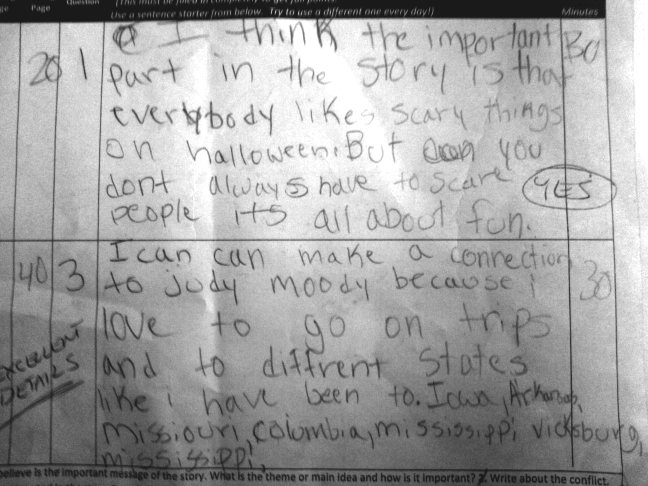 Page Question (This must be filled in completely to get full points.
Use a sentence starter from below. Try to use a different one every day!) Minutes
20 1 I think the important 30
part in the story is that
everybody likes scary things
on halloween. But you
dont always have to scare YES
people its all about fun.
40 3 I can can make a connection 30
to judy moody because i
love to go on trips
and to diffrent states
like i have been to. Iowa, Arkansas,
missiouri, columbia, mississippi vicksburg,
mississippi,
EXCELLENT
DETAILS
believe is the important message of the story. What is the theme or main idea and how is it important? 2. Write about the conflict.